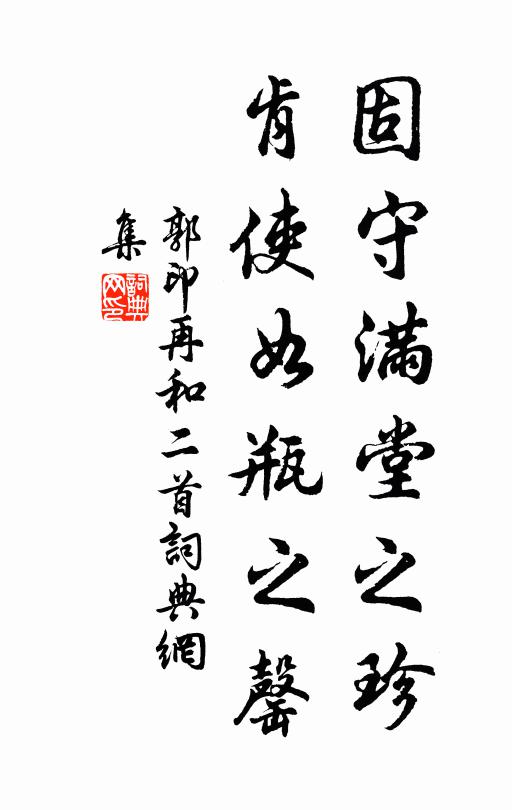 固守滿堂之珍
肯使如瓶之罄
郭印再和二首詞典網
集
詞典
网印